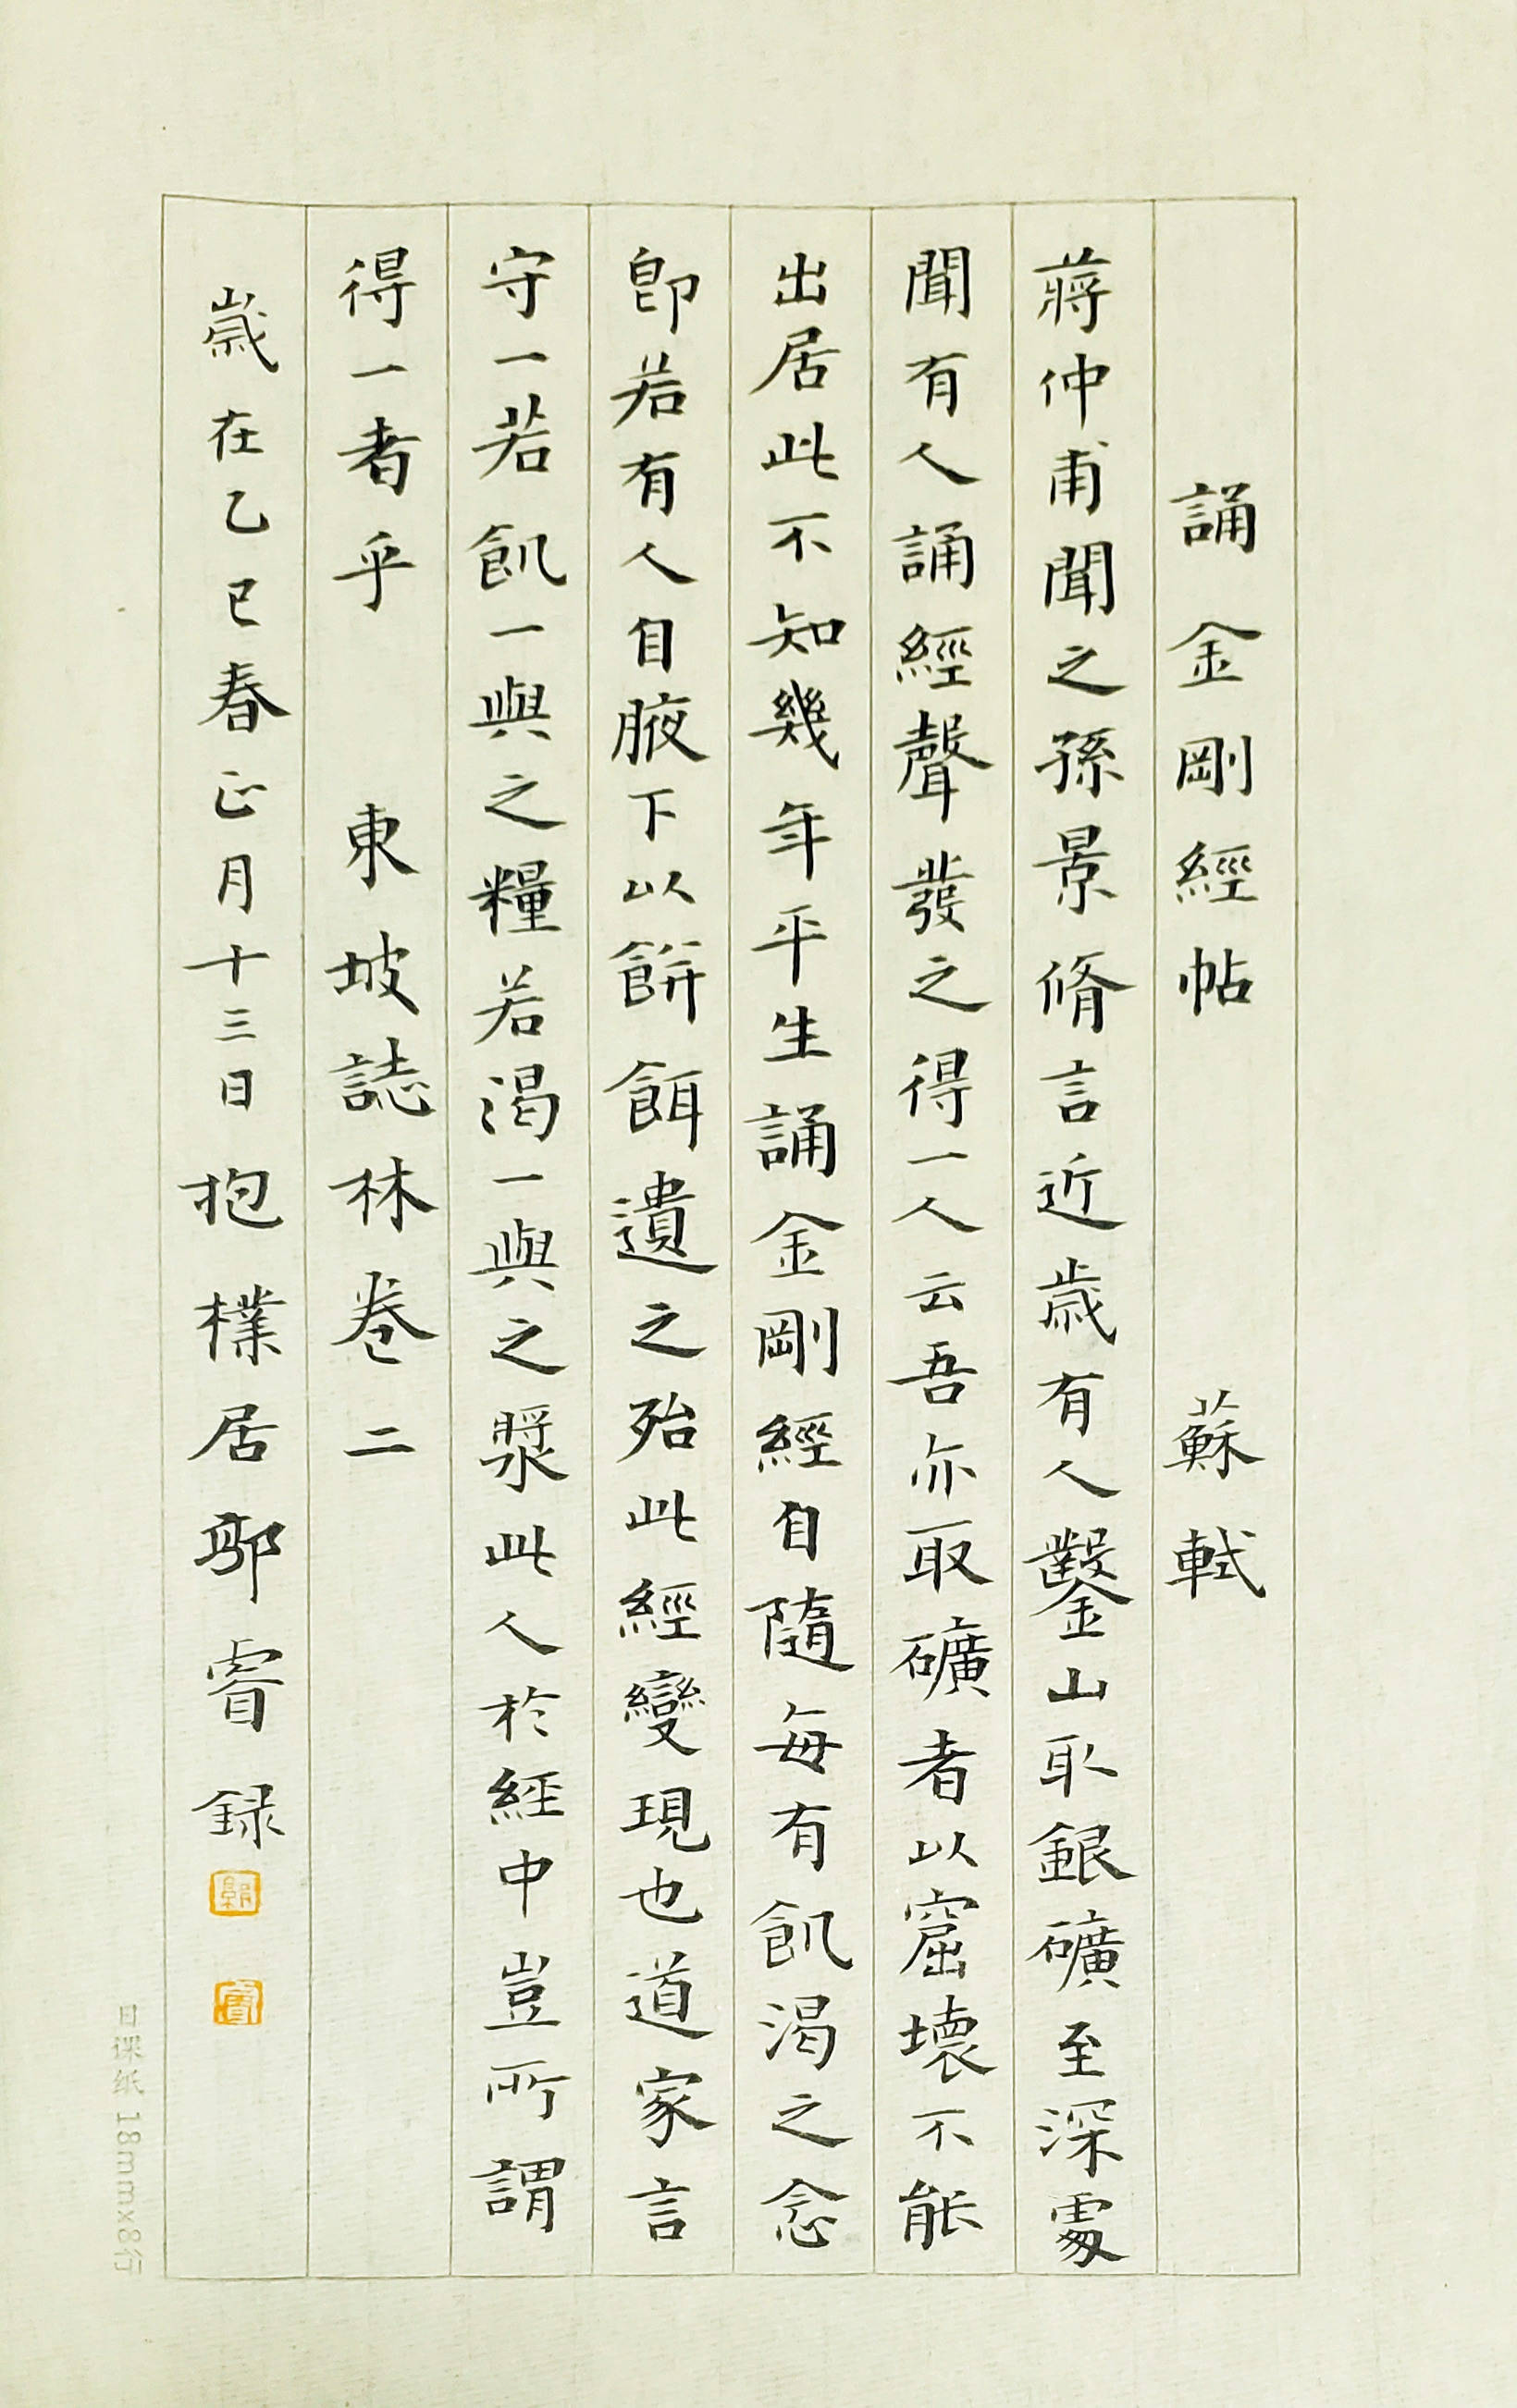 誦金剛經帖 蘇軾
蔣仲甫聞之孫景脩言近歲有人鑿山取銀礦至深處
聞有人誦經聲發之得一人云吾亦取礦者以窟壞不能
出居此不知幾年平生誦金剛經自隨每有飢渴之念
即若有人自腋下以餅餌遺之殆此經變現也道家言
守一若飢一與之糧若渴一與之漿此人於經中豈所謂
得一者乎 東坡誌林卷二
歲在乙巳春正月十三日抱樸居鄂睿録
日课纸 18mmx8行